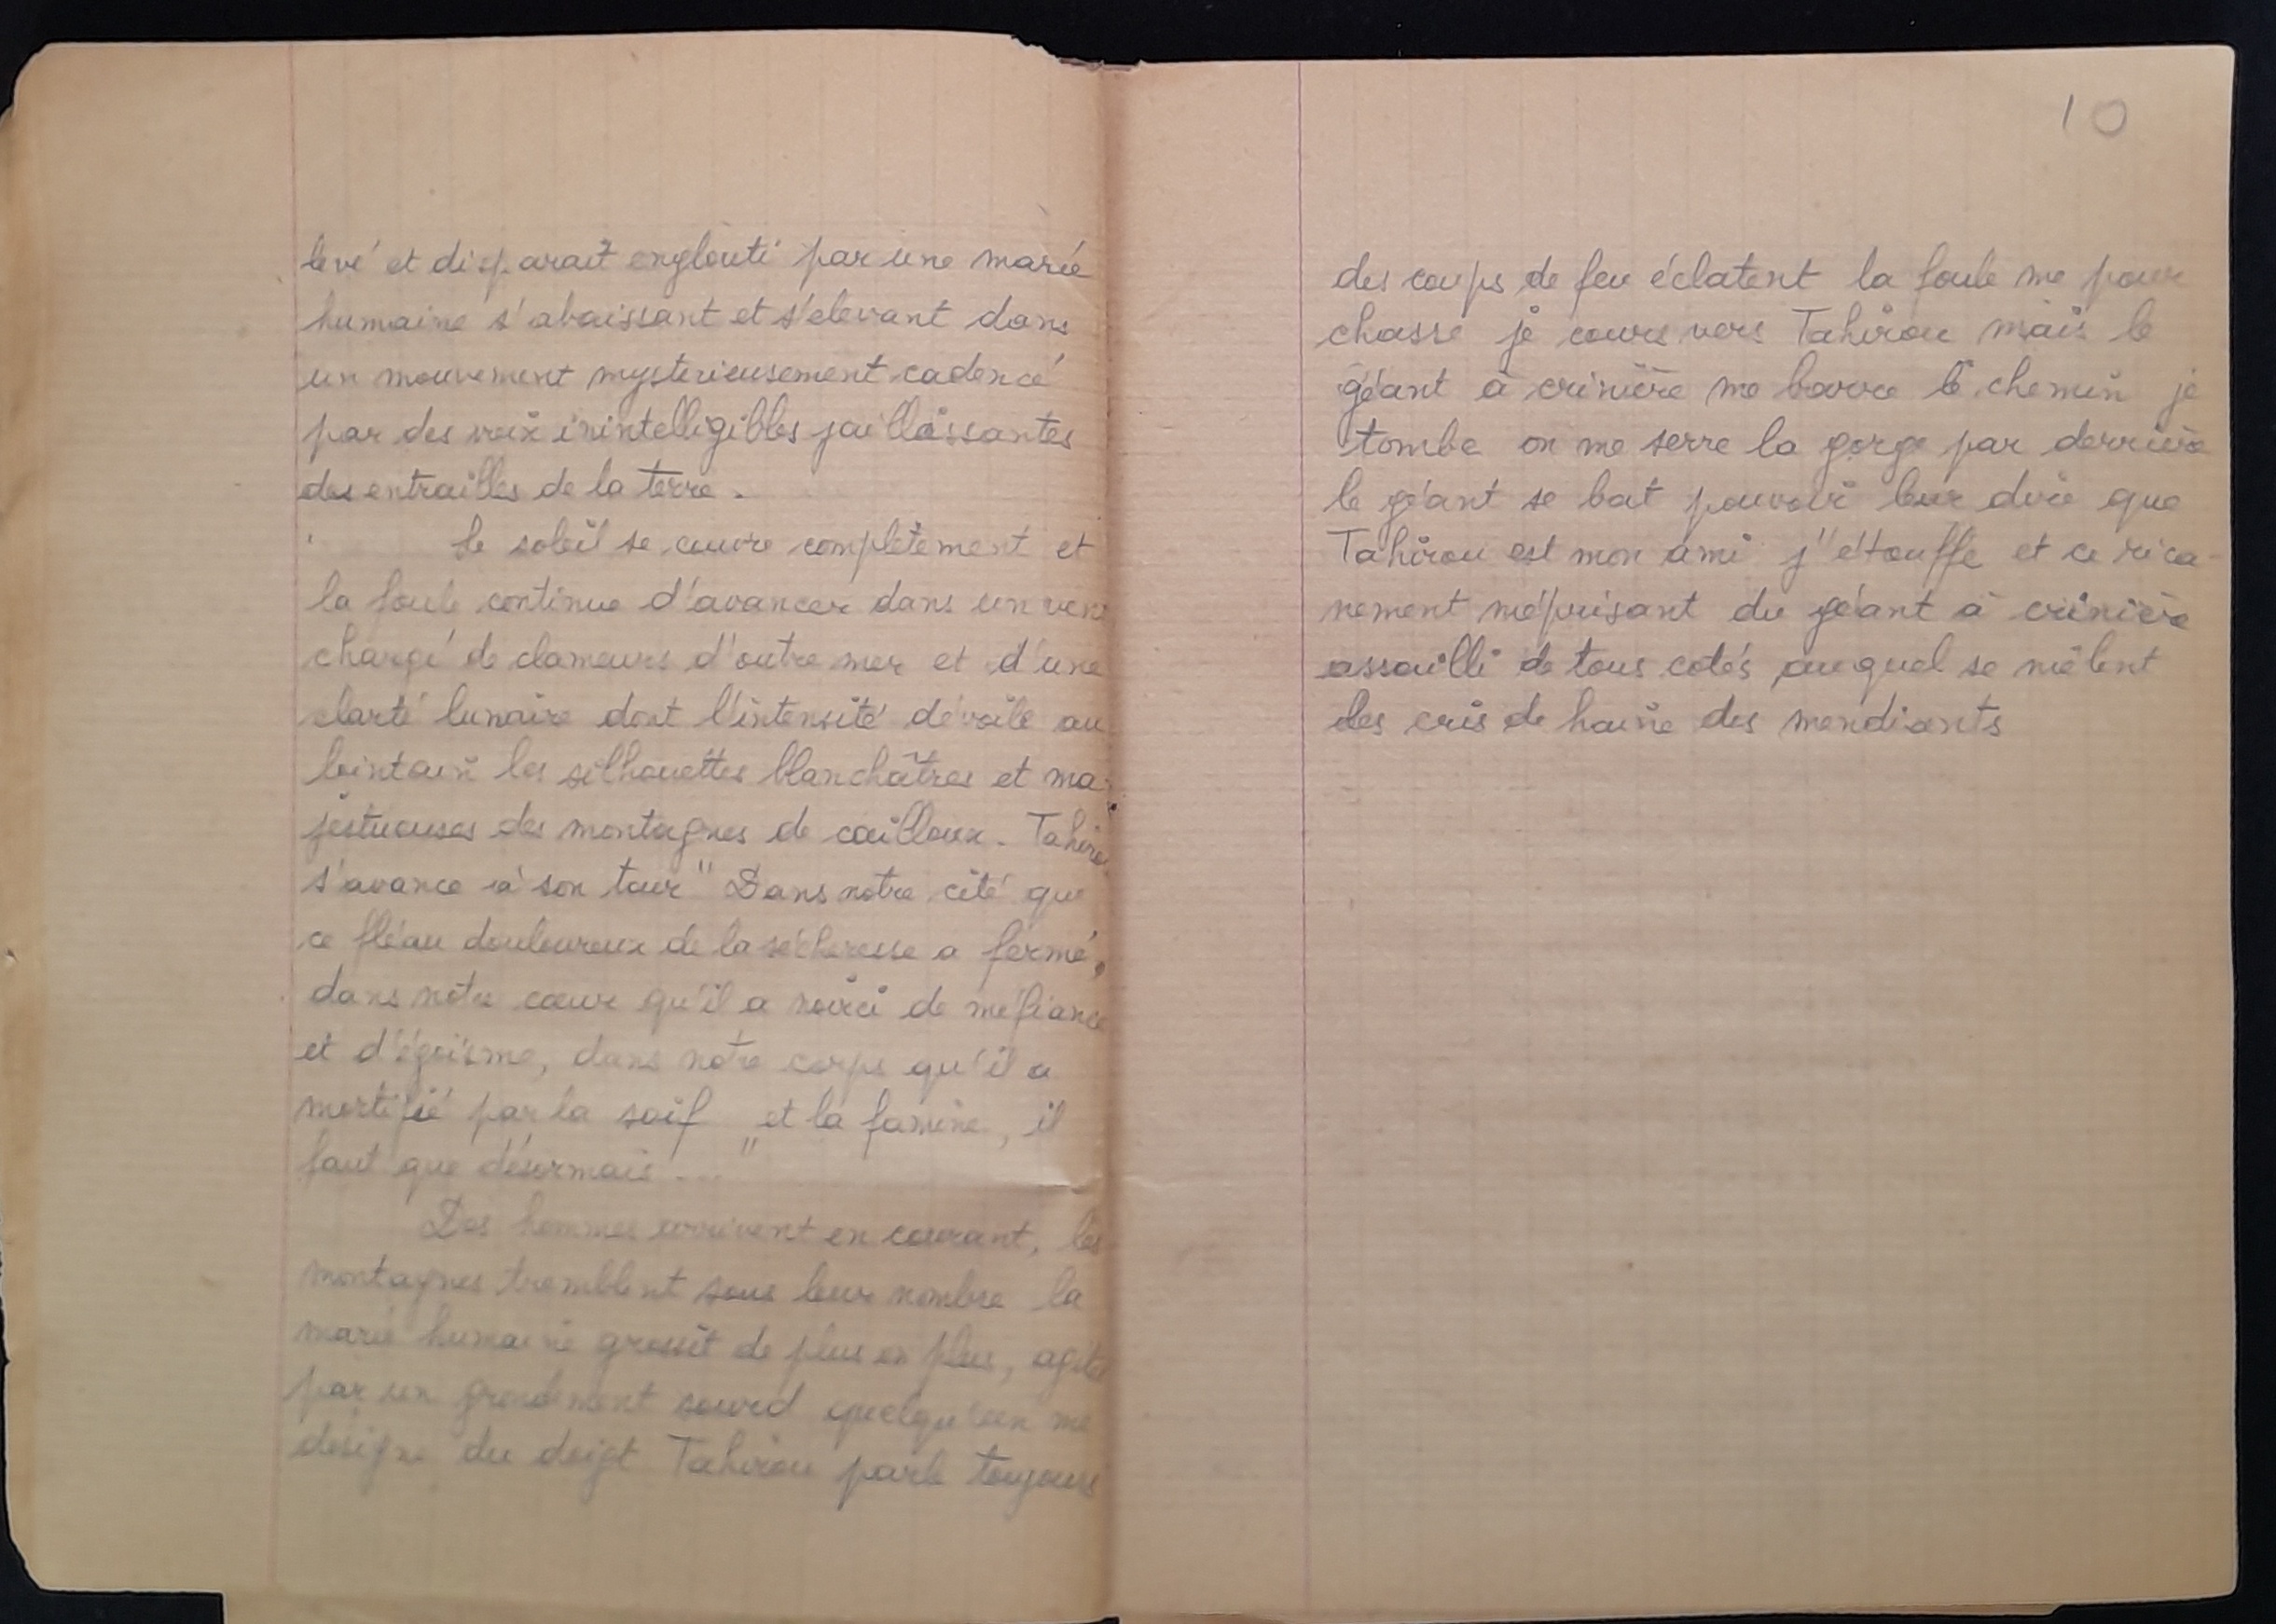 levé et disparaît englouti par une marée
humaine s'abaissant et s'elevant dans
un mouvement mysterieusement cadencé
par des voix inintelligibles jaillissantes
des entrailles de la terre.
Le soleil se couvre complètement et
la foule continue d'avancer dans un vent
chargé de clameurs d'outre mer et d'une
clarté lunaire dont l'intensité dévoile au
lointain les silhouettes blanchâtres et ma-
jestueuses des montagnes de cailloux. Tahirou
s'avance à son tour "Dans notre cité que
ce fléau douloureux de la sécheresse a fermé,
dans notre cœur qu'il a noirci de méfiance
et d'égoïsme, dans notre corps qu'il a
mortifié par la soif et la famine, il
faut que désormais...."
Des hommes arrivent en courant, les
montagnes tremblent sous leur nombre la
marée humaine grossit de plus en plus, agitée
par un grondement sourd quelqu'un me
désigne du doigt Tahirou parle toujours
10
des coups de feu éclatent la foule me pour
chasse je cours vers Tahirou mais le
géant à crinière me barre le chemin je
tombe on me serre la gorge par derrière
le géant se bat pouvoir leur dire que
Tahirou est mon ami j'étouffe et ce rica-
nement méprisant du géant à crinière
assailli de tous cotés auquel se mêlent
les cris de haine des mendiants